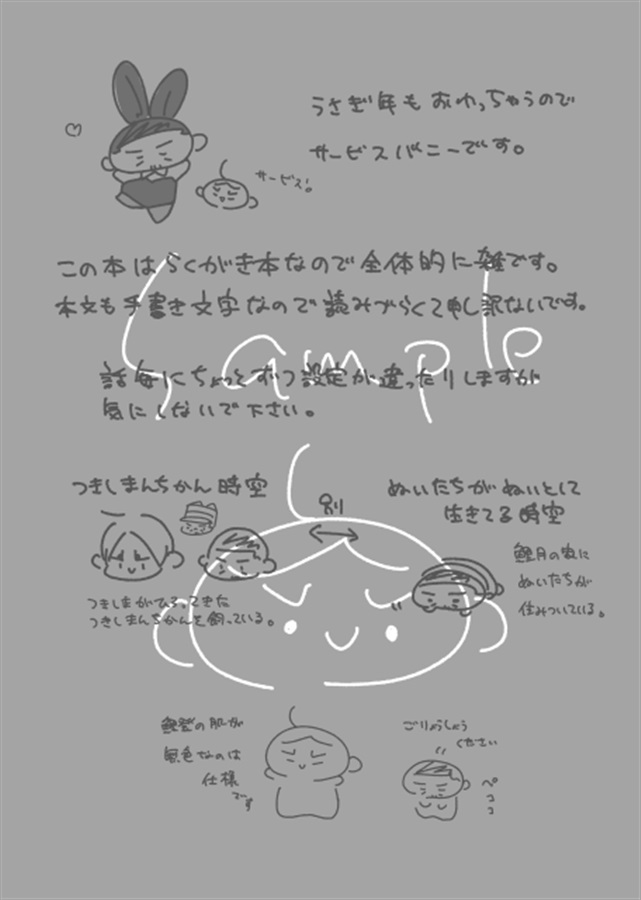 うさぎ年もおわっちゃうので
サービスバニーです。
サービス!
この本はらくがき本なので全体的に雑です。
本文も手書き文字なので読みづらくて申し訳ないです。
Sample
話毎にちょっとずつ設定が違ったりしますが
気にしないで下さい。
つきしまんちかん時空
別
ぬいたちがぬいとして
生きてる時空
つきしまがひろってきた
つきしまんちかんを飼っている。
鯉月の家に
ぬいたちが
住みついている。
鯉登の肌が
無色なのは
仕様
です
ごりょうしょう
ください
ペコ